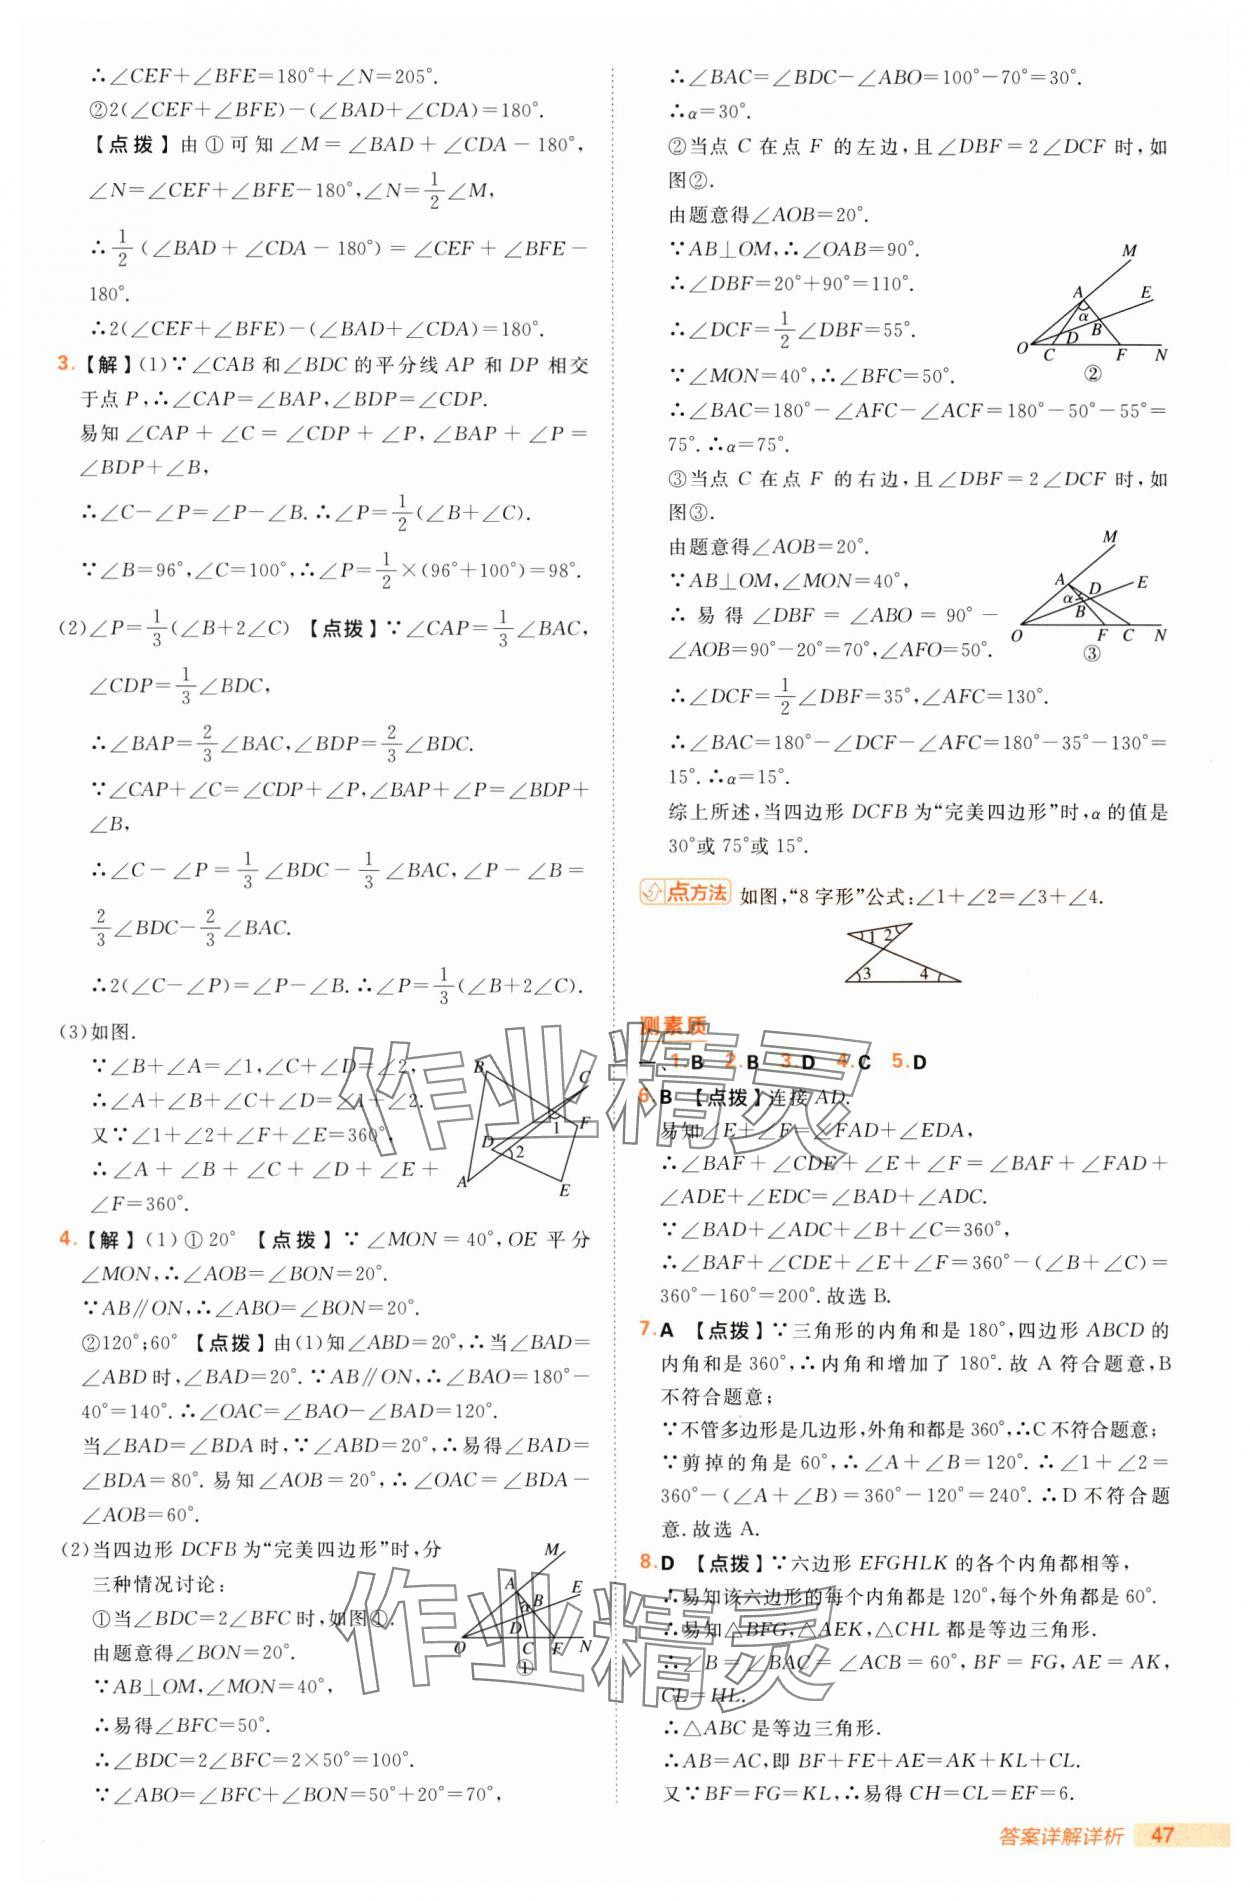 ∴∠CEF+∠BFE=180°+∠N=205°.
②2(∠CEF+∠BFE)-(∠BAD+∠CDA)=180°.
【点拨】由①可知∠M=∠BAD+∠CDA-180°,
∠N=∠CEF+∠BFE-180°,∠N=1/2∠M,
∴1/2(∠BAD+∠CDA-180°)=∠CEF+∠BFE-
180°.
∴2(∠CEF+∠BFE)-(∠BAD+∠CDA)=180°.
3.【解】(1)∵∠CAB和∠BDC的平分线AP和DP相交
于点P,∴∠CAP=∠BAP,∠BDP=∠CDP.
易知∠CAP+∠C=∠CDP+∠P,∠BAP+∠P=
∠BDP+∠B,
∴∠C-∠P=∠P-∠B.∴∠P=1/2(∠B+∠C).
∵∠B=96°,∠C=100°,∴∠P=1/2×(96°+100°)=98°.
(2)∠P=1/3(∠B+2∠C) 【点拨】∵∠CAP=1/3∠BAC,
∠CDP=1/3∠BDC,
∴∠BAP=2/3∠BAC,∠BDP=2/3∠BDC.
∵∠CAP+∠C=∠CDP+∠P,∠BAP+∠P=∠BDP+
∠B,
∴∠C-∠P=1/3∠BDC-1/3∠BAC,∠P-∠B=
2/3∠BDC-2/3∠BAC.
∴2(∠C-∠P)=∠P-∠B.∴∠P=1/3(∠B+2∠C).
(3)如图.
∵∠B+∠A=∠1,∠C+∠D=∠2,
∴∠A+∠B+∠C+∠D=∠1+∠2.
又∵∠1+∠2+∠F+∠E=360°,
∴∠A+∠B+∠C+∠D+∠E+
∠F=360°.
B C F 1 D 2 A E
4.【解】(1)①20° 【点拨】∵∠MON=40°,OE平分
∠MON,∴∠AOB=∠BON=20°.
∵AB∥ON,∴∠ABO=∠BON=20°.
②120°;60° 【点拨】由(1)知∠ABD=20°,∴当∠BAD=
∠ABD时,∠BAD=20°.∵AB∥ON,∴∠BAO=180°-
40°=140°.∴∠OAC=∠BAO-∠BAD=120°.
当∠BAD=∠BDA时,∵∠ABD=20°,∴易得∠BAD=
∠BDA=80°.易知∠AOB=20°,∴∠OAC=∠BDA-
∠AOB=60°.
(2)当四边形DCFB为“完美四边形”时,分
三种情况讨论:
①当∠BDC=2∠BFC时,如图①.
由题意得∠BON=20°.
∵AB⊥OM,∠MON=40°,
∴易得∠BFC=50°.
∴∠BDC=2∠BFC=2×50°=100°.
∵∠ABO=∠BFC+∠BON=50°+20°=70°,
M A E α B D O C F N ①
∴∠BAC=∠BDC-∠ABO=100°-70°=30°.
∴α=30°.
②当点C在点F的左边,且∠DBF=2∠DCF时,如
图②.
由题意得∠AOB=20°.
∵AB⊥OM,∴∠OAB=90°.
∴∠DBF=20°+90°=110°.
∴∠DCF=1/2∠DBF=55°.
∵∠MON=40°,∴∠BFC=50°.
∴∠BAC=180°-∠AFC-∠ACF=180°-50°-55°=
75°.∴α=75°.
M A E α B D O C F N ②
③当点C在点F的右边,且∠DBF=2∠DCF时,如
图③.
由题意得∠AOB=20°.
∵AB⊥OM,∠MON=40°,
∴易得∠DBF=∠ABO=90°-
∠AOB=90°-20°=70°,∠AFO=50°.
∴∠DCF=1/2∠DBF=35°,∠AFC=130°.
∴∠BAC=180°-∠DCF-∠AFC=180°-35°-130°=
15°.∴α=15°.
M A D E α B O F C N ③
综上所述,当四边形DCFB为“完美四边形”时,α的值是
30°或75°或15°.
点方法 如图,“8字形”公式:∠1+∠2=∠3+∠4.
1 2 3 4
测素质
一、1.B 2.B 3.D 4.C 5.D
6.B 【点拨】连接AD.
易知∠E+∠F=∠FAD+∠EDA,
∴∠BAF+∠CDE+∠E+∠F=∠BAF+∠FAD+
∠ADE+∠EDC=∠BAD+∠ADC.
∵∠BAD+∠ADC+∠B+∠C=360°,
∴∠BAF+∠CDE+∠E+∠F=360°-(∠B+∠C)=
360°-160°=200°.故选B.
7.A 【点拨】∵三角形的内角和是180°,四边形ABCD的
内角和是360°,∴内角和增加了180°.故A符合题意,B
不符合题意;
∵不管多边形是几边形,外角和都是360°,∴C不符合题意;
∵剪掉的角是60°,∴∠A+∠B=120°.∴∠1+∠2=
360°-(∠A+∠B)=360°-120°=240°.∴D不符合题
意.故选A.
8.D 【点拨】∵六边形EFGHLK的各个内角都相等,
∴易知该六边形的每个内角都是120°,每个外角都是60°.
∴易知△BFG,△AEK,△CHL都是等边三角形.
∴∠B=∠BAC=∠ACB=60°,BF=FG,AE=AK,
CL=HL.
∴△ABC是等边三角形.
∴AB=AC,即BF+FE+AE=AK+KL+CL.
又∵BF=FG=KL,∴易得CH=CL=EF=6.
答案详解详析 47
作业精灵
作业精灵